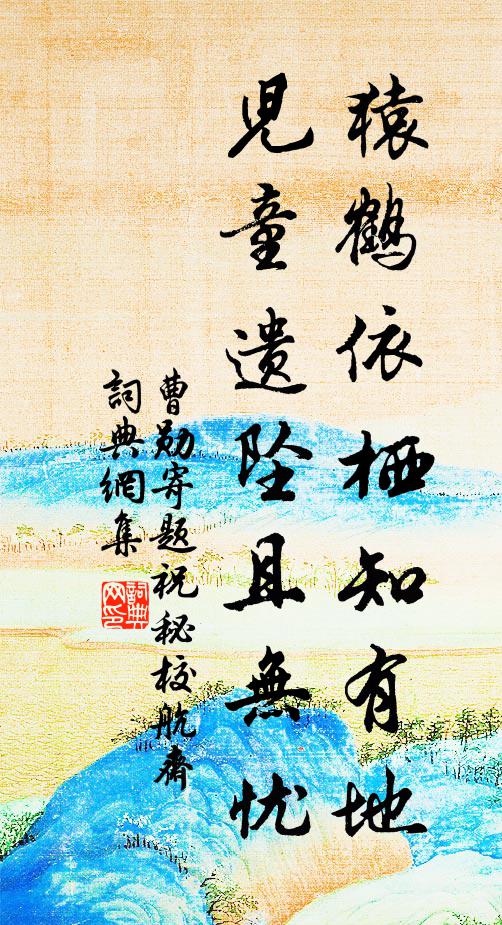 猿鶴依栖知有地
兒童遺墜且無忧
曹勛寄題祝秘校航齋
詞典網集
詞典